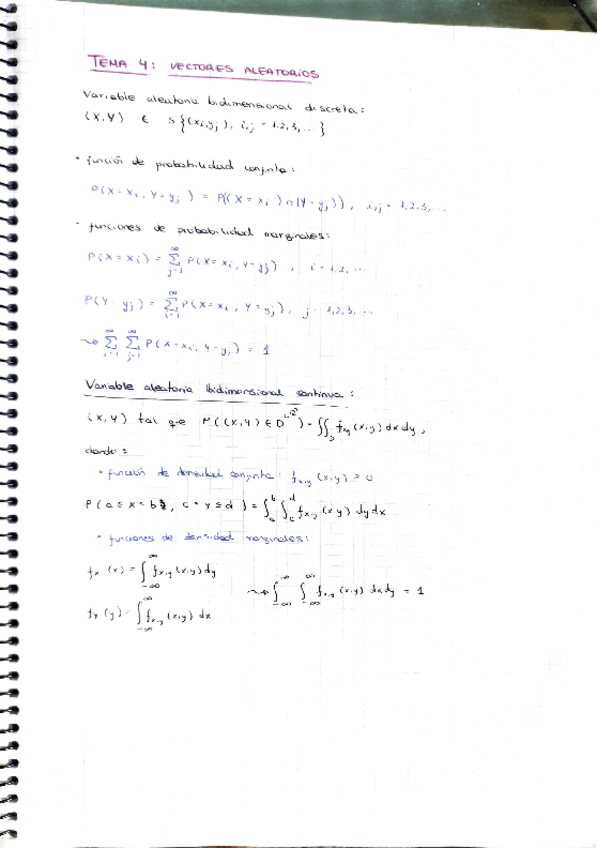 TEMA 4: VECTORES ALEATORIOS
Variable aleatoria bidimensional discreta:
(X,Y) ∈ S{(xi,yj), i,j = 1,2,3,...}
• función de probabilidad conjunta:
P(X=xi, Y=yj) = P((X=xi)∩(Y=yj)), i,j = 1,2,3,...
• funciones de probabilidad marginales:
P(X=xi) = ∞ Σ j=1 P(X=xi, Y=yj), i=1,2,...
P(Y=yj) = ∞ Σ i=1 P(X=xi, Y=yj), j=1,2,3,...
⇝ ∞ Σ i=1 ∞ Σ j=1 P(X=xi, Y=yj) = 1
Variable aleatoria bidimensional continua:
(X,Y) tal que P((X,Y) ∈ D) = ∬D fxy(x,y) dx dy,
donde:
• función de densidad conjunta: fx,y(x,y) ≥ 0
P(a ≤ X ≤ b, c ≤ Y ≤ d) = ∫a^b ∫c^d fx,y(x,y) dy dx
• funciones de densidad marginales:
fx(x) = ∫-∞^∞ fx,y(x,y) dy
⇝ ∫-∞^∞ ∫-∞^∞ fx,y(x,y) dx dy = 1
fy(y) = ∫-∞^∞ fx,y(x,y) dx